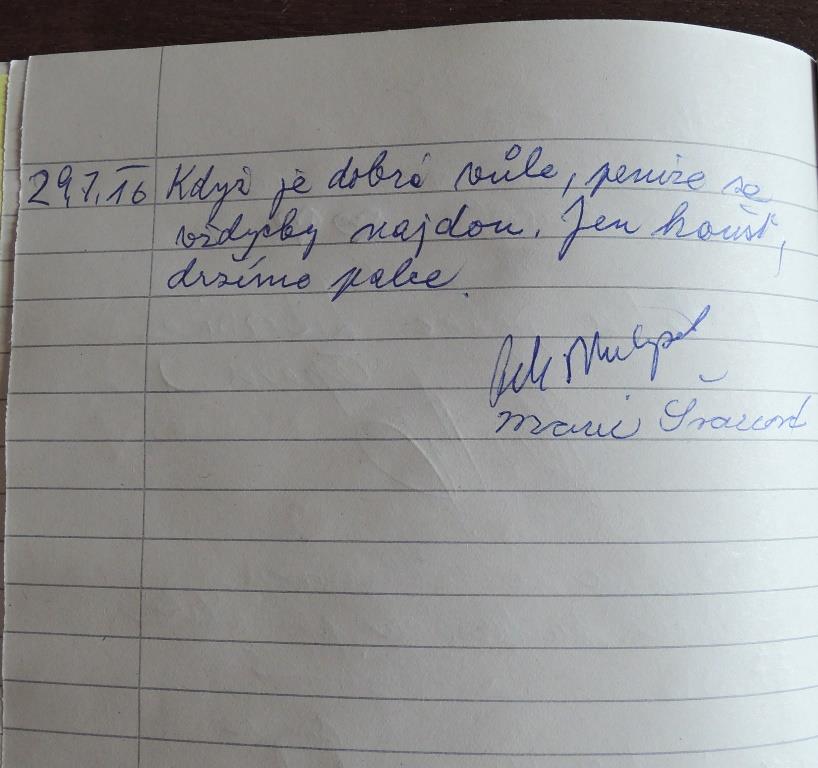 29.7.16 Když je dobrá vůle, peníze se
vždycky najdou. Jen houšť,
držíme palce.
Marie Švarcová